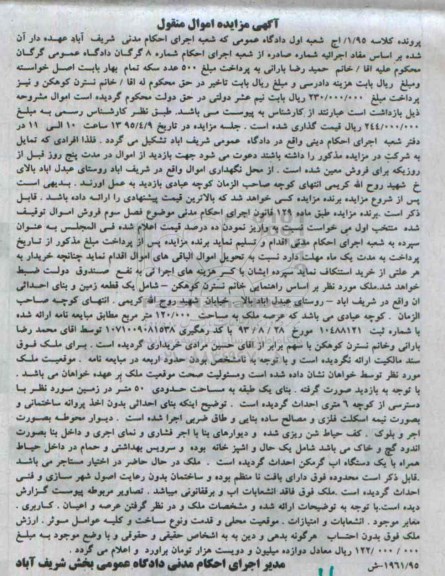 آگهی مزایده اموال منقول
پرونده کلاسه ۱/۹۵/ اج شعبه اول دادگاه عمومی که شعبه اجرای احکام مدنی شریف آباد عهده دار آن
شده بر اساس مفاد اجرائیه شماره صادره از شعبه اجرای احکام شماره ۸ گرگان دادگاه عمومی گرگان
محکوم علیه اقا / خانم حمید رضا بارانی به پرداخت مبلغ ۵۰۰ عدد سکه تمام بهار بابت اصل خواسته
ومبلغ ریال بابت هزینه دادرسی و مبلغ ریال بابت تاخیر در حق محکوم له اقا / خانم نسترن کوهکن و نیز
پرداخت مبلغ ۲۳۰/۰۰۰/۰۰۰ ریال بابت نیم عشر دولتی در حق دولت محکوم گردیده است اموال مشروحه
ذیل بازداشت است عبارتند از کارشناس به پیوست می باشد. طبق نظر کارشناس رسمی به مبلغ
۲۴۴/۰۰۰/۰۰۰ ریال قیمت گذاری شده است . جلسه مزایده در تاریخ ۱۳۹۵/۴/۹ ساعت ۱۰ الی ۱۱ در
دفتر شعبه اجرای احکام دینی واقع در دادگاه عمومی شریف اباد تشکیل می گردد . فلذا افرادی که تمایل
به شرکت در مزایده مذکور را داشته باشند دعوت می شود جهت بازدید از اموال در مدت پنج روز قبل از
روزیکه برای فروش معین شده است . از محل نگهداری اموال واقع در شریف اباد روستای عبدل اباد بالای
خ شهید روح اله کریمی انتهای کوچه صاحب الزمان کوچه عبادی بازدید به عمل اورند . بدیهی است
پس از شروع مزایده برنده مزایده کسی خواهد شد که بالاترین قیمت پیشنهادی را ارائه داده باشد . قابل
ذکر است .برنده مزایده طبق ماده ۱۲۹ قانون اجرای احکام مدنی موضوع فصل سوم فروش اموال توقیف
شده منتخب اول می خواست نسبت به واریز نمودن ده درصد قیمت اعلام شده فی المجلس به عنوان
سپرده به شعبه اجرای احکام مدنی اقدام و تسلیم نماید برنده مزایده پس از پرداخت مبلغ مذکور از تاریخ
پرداخت به مدت یک ماه مهلت دارد نسبت به تحویل اموال الباقی های اموال اقدام نماید چنانچه خریدار به
هر علتی از خرید استنکاف نماید سپرده ایشان با کسر هزینه های اجرایی به نفع صندوق دولت ضبط
خواهد شد.ملک مورد نظر بر اساس راهنمایی خانم نسترن کوهکن – شامل یک قطعه زمین و بنای احداثی
ان واقع در شریف اباد – روستای عبدل اباد بالا – خیابان شهید روح اله کریمی . انتهای کوچه صاحب
الزمان . کوچه عبادی می باشد که عرصه ملک به مساحت ۱۲۰/۰۰۰ متر مربع مطابق مبایعه نامه ارائه شده
با شماره ثبت ۱۰۴۸۸۱۲۱ مورخ ۹۳/۸/۲۸ با کد رهگیری ۱۰۷۱۰۰۹۰۸۱۵۳۸ توسط اقای محمد رضا
بارانی وخانم نسترن کوهکن با سهم برابر از اقای حسین مرادی خریداری گردیده است . برای ملک فوق
سند مالکیت ارائه نگردیده است و با توجه به نامشخص بودن حدود اربعه در مبایعه نامه . موقعیت ملک
مورد نظر توسط خواهان نشان داده شده است ومسئولیت صحت موقعیت ملک بر عهده خواهان می باشد .
با توجه به بازدید صورت گرفته . بنای یک طبقه به مساحت حدودی ۵۰ متر در زمین مورد نظر با
دسترسی از کوچه ۶ متری احداث گردیده است . توضیح اینکه بنای احداثی بدون اخذ پروانه ساختمانی و
بصورت نیمه اسکلت فلزی و مصالح ساده بنایی و طاق ضربی اجرا شده است . دیوار محوطه بصورت
اجر و بلوک . کف حیاط شن ریزی شده و دیوارهای بنا با اجر فشاری و نمای اجری و داخل بنا بصورت
اندود گچ و خاک می باشد شامل یک حال و اشپز خانه بوده و سرویس بهداشتی و حمام در داخل حیاط
همراه با یک دستگاه اب گرمکن احداث گردیده است . ملک در حال حاضر در اختیار مستاجر می باشد
.قابل ذکر است محدوده فوق دارای بافت نا منظم بوده و ساختمان بدون رعایت اصول شهر سازی و فنی
احداث گردیده است .ملک فوق فاقد انشعابات اب و برقفانونی میباشد . تصاویر مربوطه پیوست گزارش
دیده است.با توجه به توضیحات ارائه شده و مشخصات ملک و در نظر گرفتن عرصه و اعیان . کاربری .
مغایر موجود . انشعابات و امتیازات . موقعیت محلی و قدمت ونوع ساخت و کلیه عوامل موثر . ارزش
ملک فوق بدون احتساب هرگونه بدهی و دین به به اشخاص حقیقی و حقوقی و با وضع موجود به مبلغ
۱۲۲/۰۰۰/۰۰۰ ریال معادل دوازده میلیون و دویست هزار تومان براورد و اعلام می گردد .
۱۹۶۱/۹۵-ش مدیر اجرای احکام مدنی دادگاه عمومی بخش شریف آباد